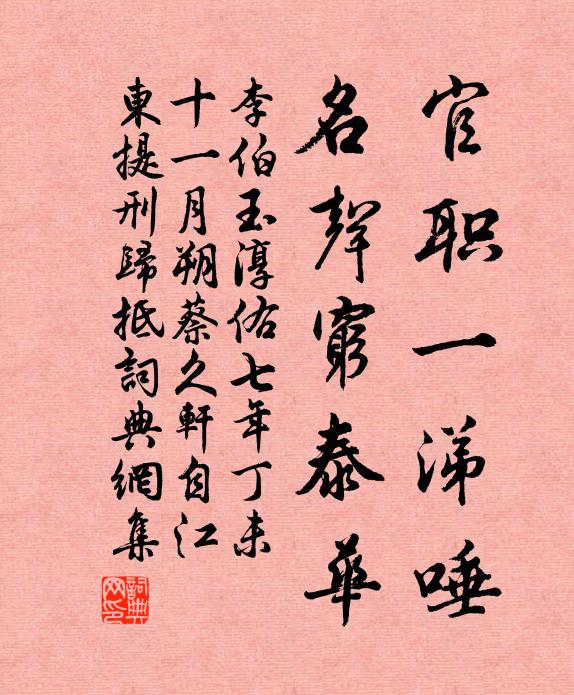 官职一涕唾
名聲窮泰華
李伯玉淳佑七年丁未
十一月朔蔡久軒自江
東提刑歸抵詞典網集
詞典
网印